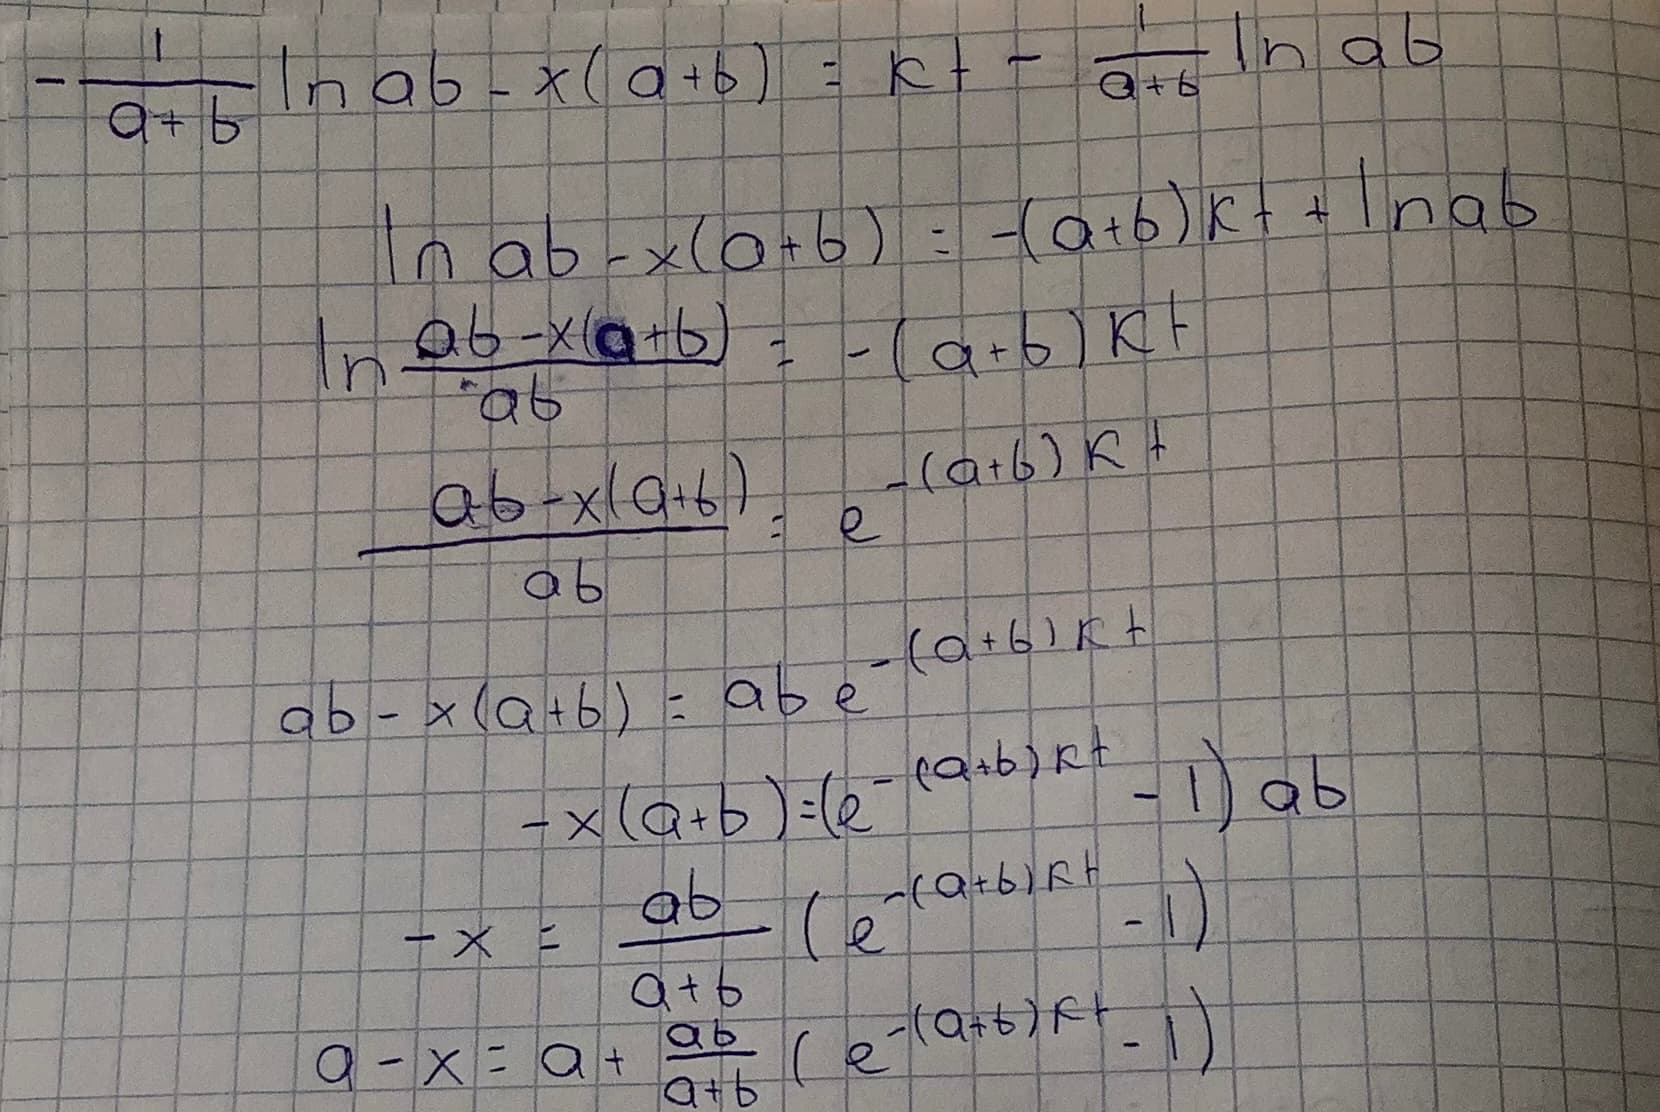 - 1/(a+b) ln ab - x(a+b) = kt - 1/(a+b) ln ab
ln ab - x(a+b) = -(a+b)kt + ln ab
ln (ab-x(a+b))/ab = -(a+b)kt
(ab-x(a+b))/ab = e^(-(a+b)kt)
ab - x(a+b) = ab e^(-(a+b)kt)
-x(a+b) = (e^(-(a+b)kt) - 1) ab
-x = ab/(a+b) (e^(-(a+b)kt) - 1)
a - x = a + ab/(a+b) (e^(-(a+b)kt) - 1)